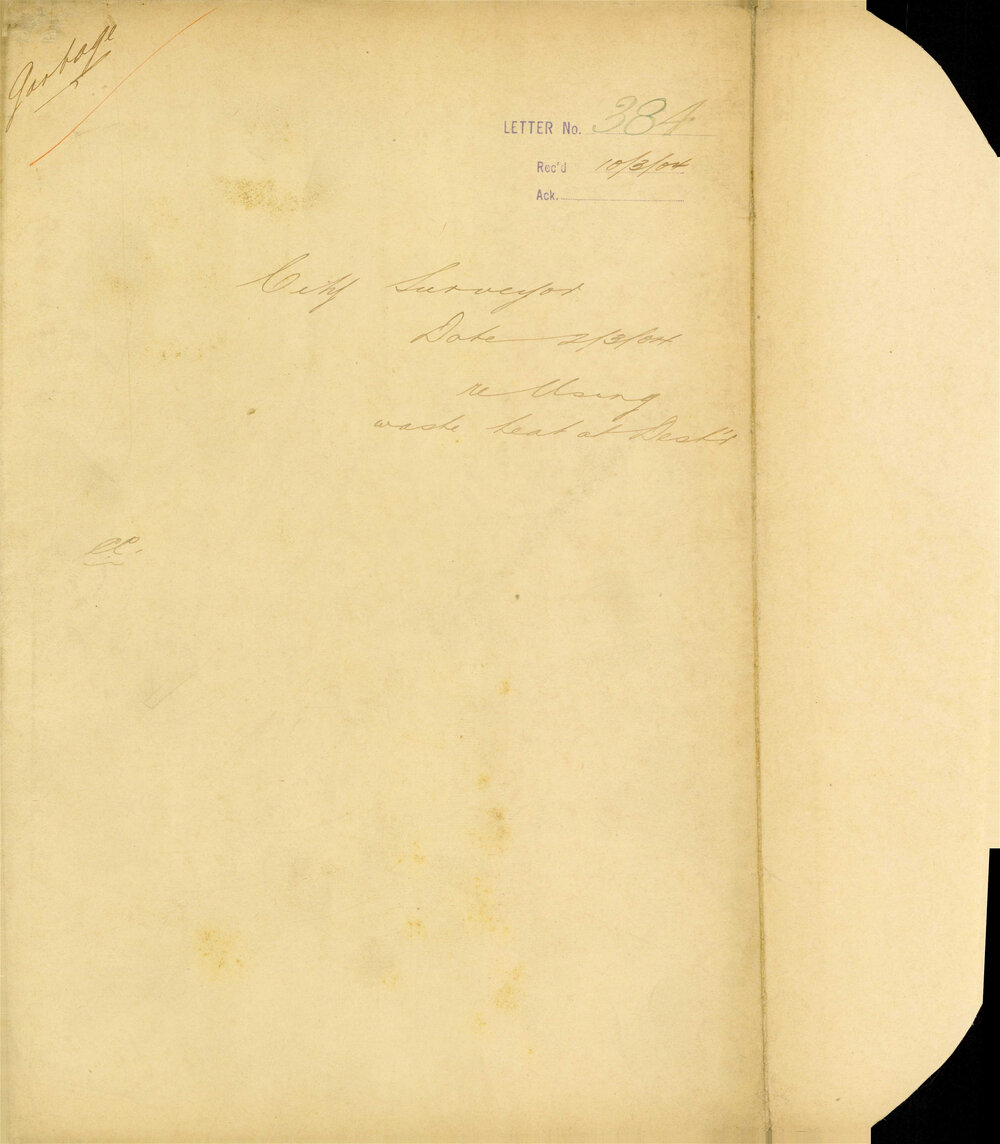 Garbage
LETTER No. 384
Rec'd 10/3/04.
Ack.
City Surveyor
Date 2/3/04.
re Using
waste heat at Dest'r